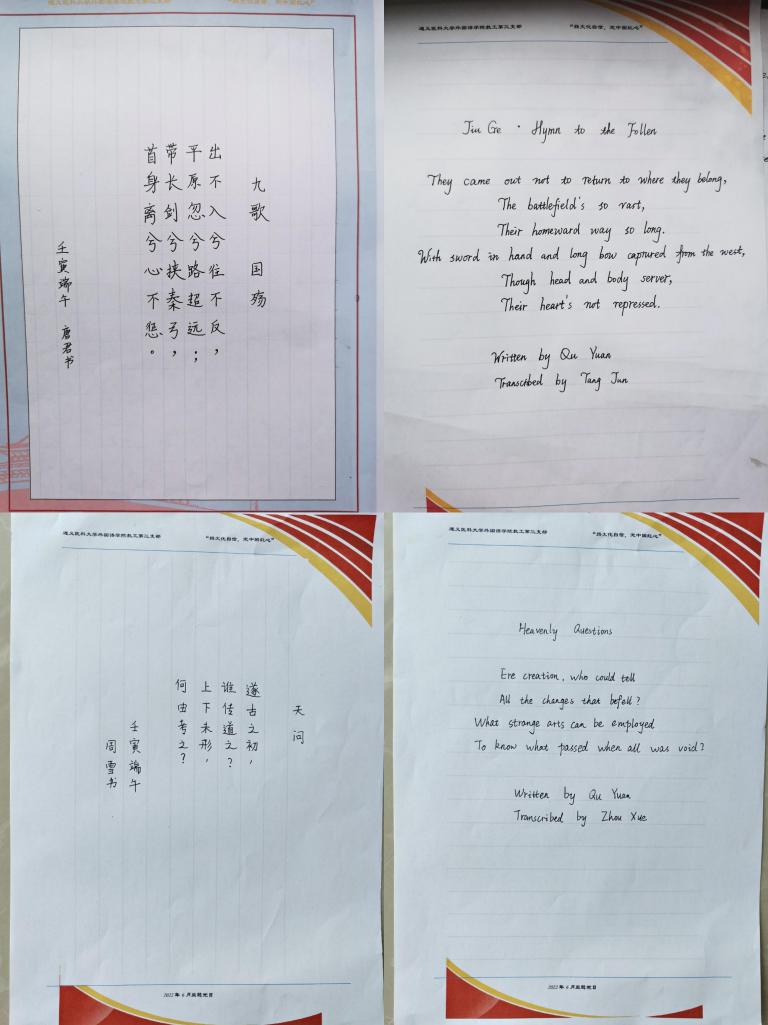 遵义医科大学外国语学院教工第三支部
九歌 国殇
出不入兮往不反，
平原忽兮路超远；
带长剑兮挟秦弓，
首身离兮心不惩。
壬寅端午 唐君书
遵义医科大学外国语学院教工第三支部
Jiu Ge · Hymn to the Follen
They came out not to return to where they belong,
The battlefield's so vast,
Their homeward way so long.
With sword in hand and long bow captured from the west,
Though head and body server,
Their heart's not repressed.
Written by Qu Yuan
Transctbed by Tang Jun
遵义医科大学外国语学院教工第三支部
天问
遂古之初，
谁传道之？
上下未形，
何由考之？
壬寅端午
周雪书
2022年6月主题党日
遵义医科大学外国语学院教工第三支部
Heavenly Questions
Ere creation, who could tell
All the changes that befell?
What strange arts can be employed
To know what passed when all was void?
Written by Qu Yuan
Transcribed by Zhou Xue
2022年6月主题党日